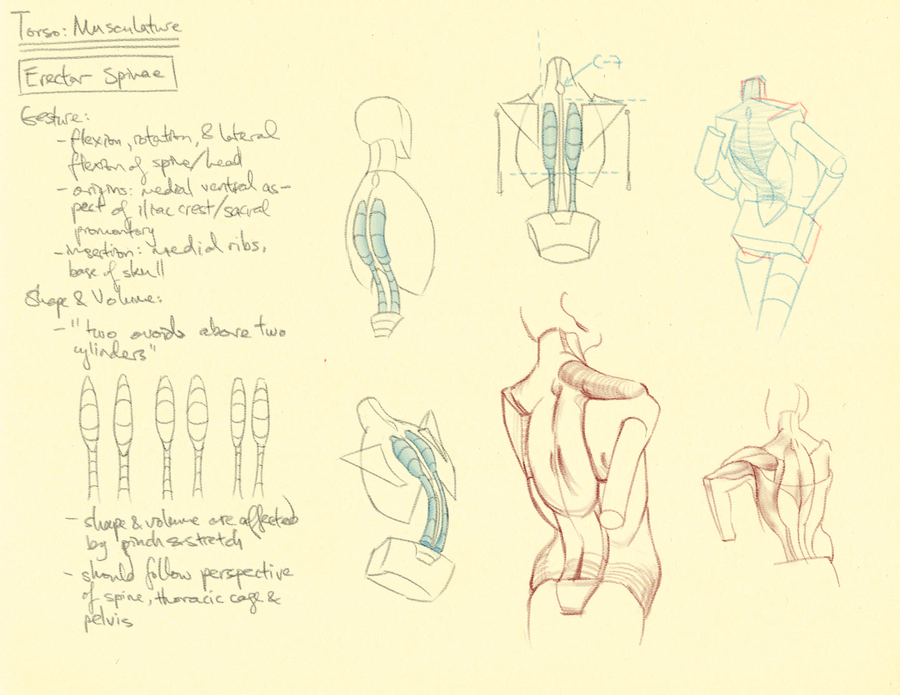 Torso: Musculature
Erector Spinae
Gesture:
- flexion, rotation, & lateral
flexion of spine/head
- origins: medial ventral as-
pect of iliac crest/sacral
promontory
- insertion: medial ribs,
base of skull
Shape & Volume:
- "two ovoids above two
cylinders"
- shape & volume are affected
by pinch & stretch
- should follow perspective
of spine, thoracic cage &
pelvis
C-7